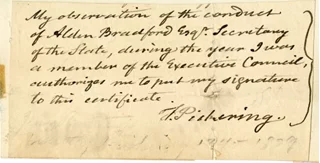 My observation of the conduct
of Alden Bradford Esqr. Secretary
of the State, during the year I was
a member of the Executive Council,
authorizes me to put my signature
to this certificate.
T. Pickering.